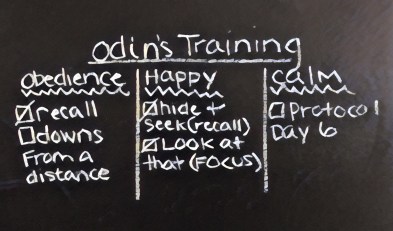 odin's Training
obedience
☑ recall
☐ downs
From a
distance
Happy
☑ hide +
seek (recall)
☑ Look at
that (FOCUS)
calm
☐ Protocol
Day 6